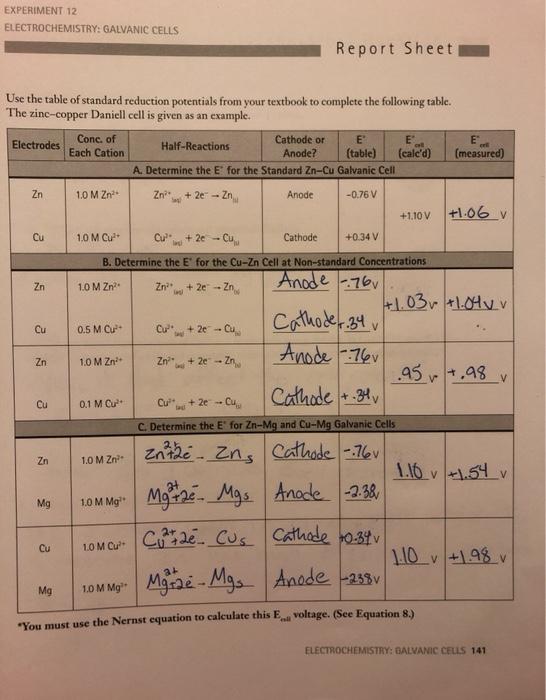 EXPERIMENT 12
ELECTROCHEMISTRY: GALVANIC CELLS
Report Sheet
Use the table of standard reduction potentials from your textbook to complete the following table.
The zinc-copper Daniell cell is given as an example.
Electrodes Conc. of Each Cation Half-Reactions Cathode or Anode? E° (table) E°cell (calc'd) E°cell (measured)
A. Determine the E° for the Standard Zn-Cu Galvanic Cell
Zn 1.0 M Zn²⁺ Zn²⁺(aq) + 2e⁻ → Zn(s) Anode -0.76 V
+1.10 V +1.06 V
Cu 1.0 M Cu²⁺ Cu²⁺(aq) + 2e⁻ → Cu(s) Cathode +0.34 V
B. Determine the E° for the Cu-Zn Cell at Non-standard Concentrations
Zn 1.0 M Zn²⁺ Zn²⁺(aq) + 2e⁻ → Zn(s) Anode -.76 V
+1.03 V +1.04 V V
Cu 0.5 M Cu²⁺ Cu²⁺(aq) + 2e⁻ → Cu(s) Cathode +.34 V
Zn 1.0 M Zn²⁺ Zn²⁺(aq) + 2e⁻ → Zn(s) Anode -.76 V
.95 V +.98 V
Cu 0.1 M Cu²⁺ Cu²⁺(aq) + 2e⁻ → Cu(s) Cathode +.34 V
C. Determine the E° for Zn-Mg and Cu-Mg Galvanic Cells
Zn 1.0 M Zn²⁺ Zn²⁺+2e⁻ - Zns Cathode -.76 V
1.10 V +1.54 V
Mg 1.0 M Mg²⁺ Mg²⁺+2e⁻ - Mgs Anode -2.38 V
Cu 1.0 M Cu²⁺ Cu²⁺+2e⁻ - Cus Cathode +0.34 V
1.10 V +1.98 V
Mg 1.0 M Mg²⁺ Mg²⁺+2e⁻ - Mgs Anode -238 V
*You must use the Nernst equation to calculate this Ecell voltage. (See Equation 8.)
ELECTROCHEMISTRY: GALVANIC CELLS 141